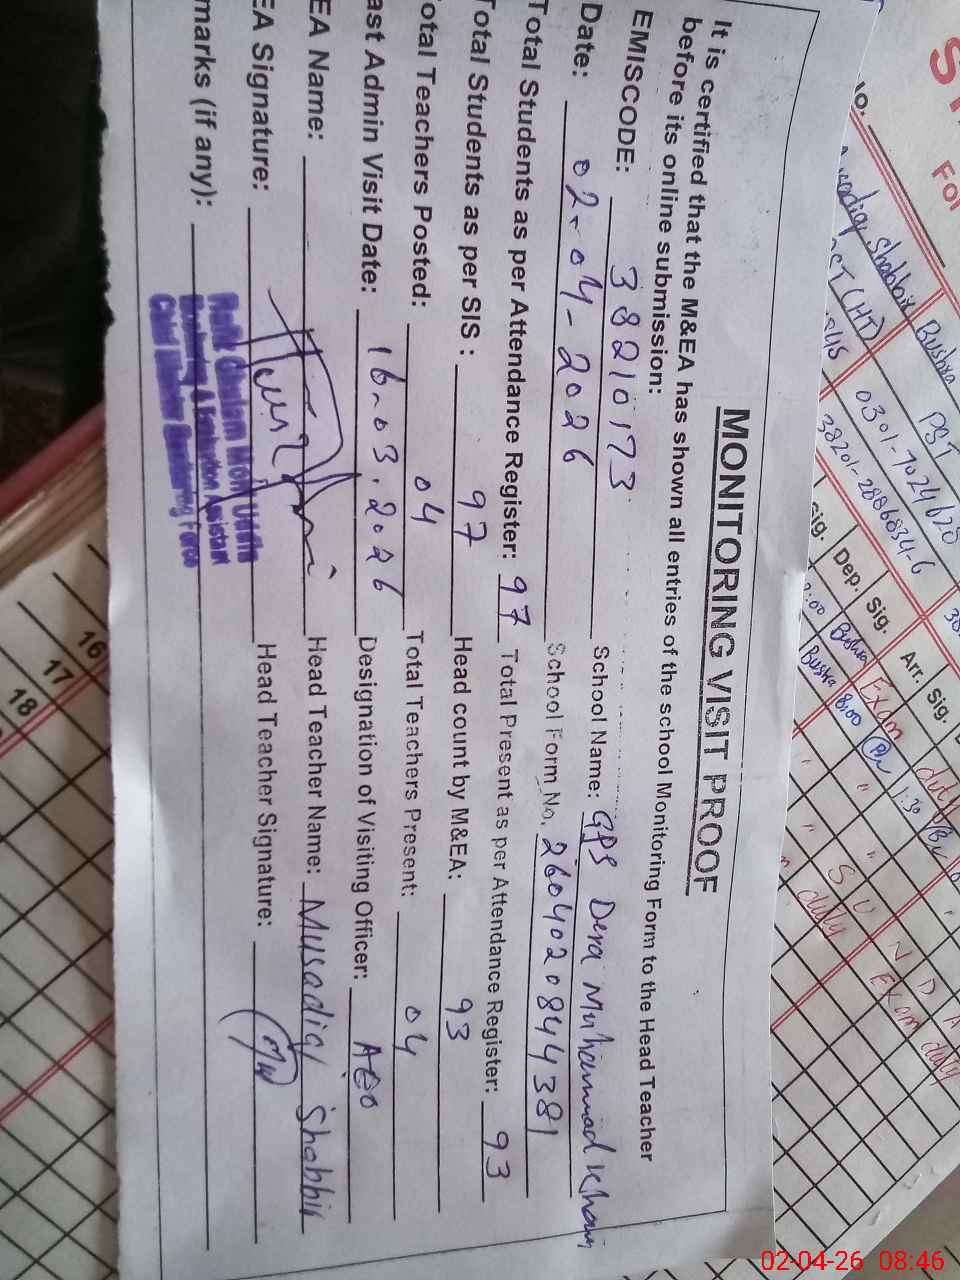 MONITORING VISIT PROOF
It is certified that the M&EA has shown all entries of the school Monitoring Form to the Head Teacher
before its online submission:
EMISCODE: 38210173 School Name: GPS Dera Muhammad Khan
Date: 02-04-2026 School Form No. 2604020844381
Total Students as per Attendance Register: 97 Total Present as per Attendance Register: 93
Total Students as per SIS: 97 Head count by M&EA: 93
otal Teachers Posted: 04 Total Teachers Present: 04
ast Admin Visit Date: 16-03.2026 Designation of Visiting Officer: AEO
EA Name: Head Teacher Name: Musadiq Shabbir
EA Signature: Head Teacher Signature:
marks (if any):
Rafie Ghulam
Monitoring & Evaluation Assistant
Chief Minister Monitoring Force
For
Shabbir Bushra
(HT) PST
0301-7024628
38201-2886834-6
Sig. Dep. Sig. Arr. Sig.
Bushra 8:00 1:30
Bushra
Exam duty
S U N D A
duty Exam duty
16
17
18
02-04-26 08:46